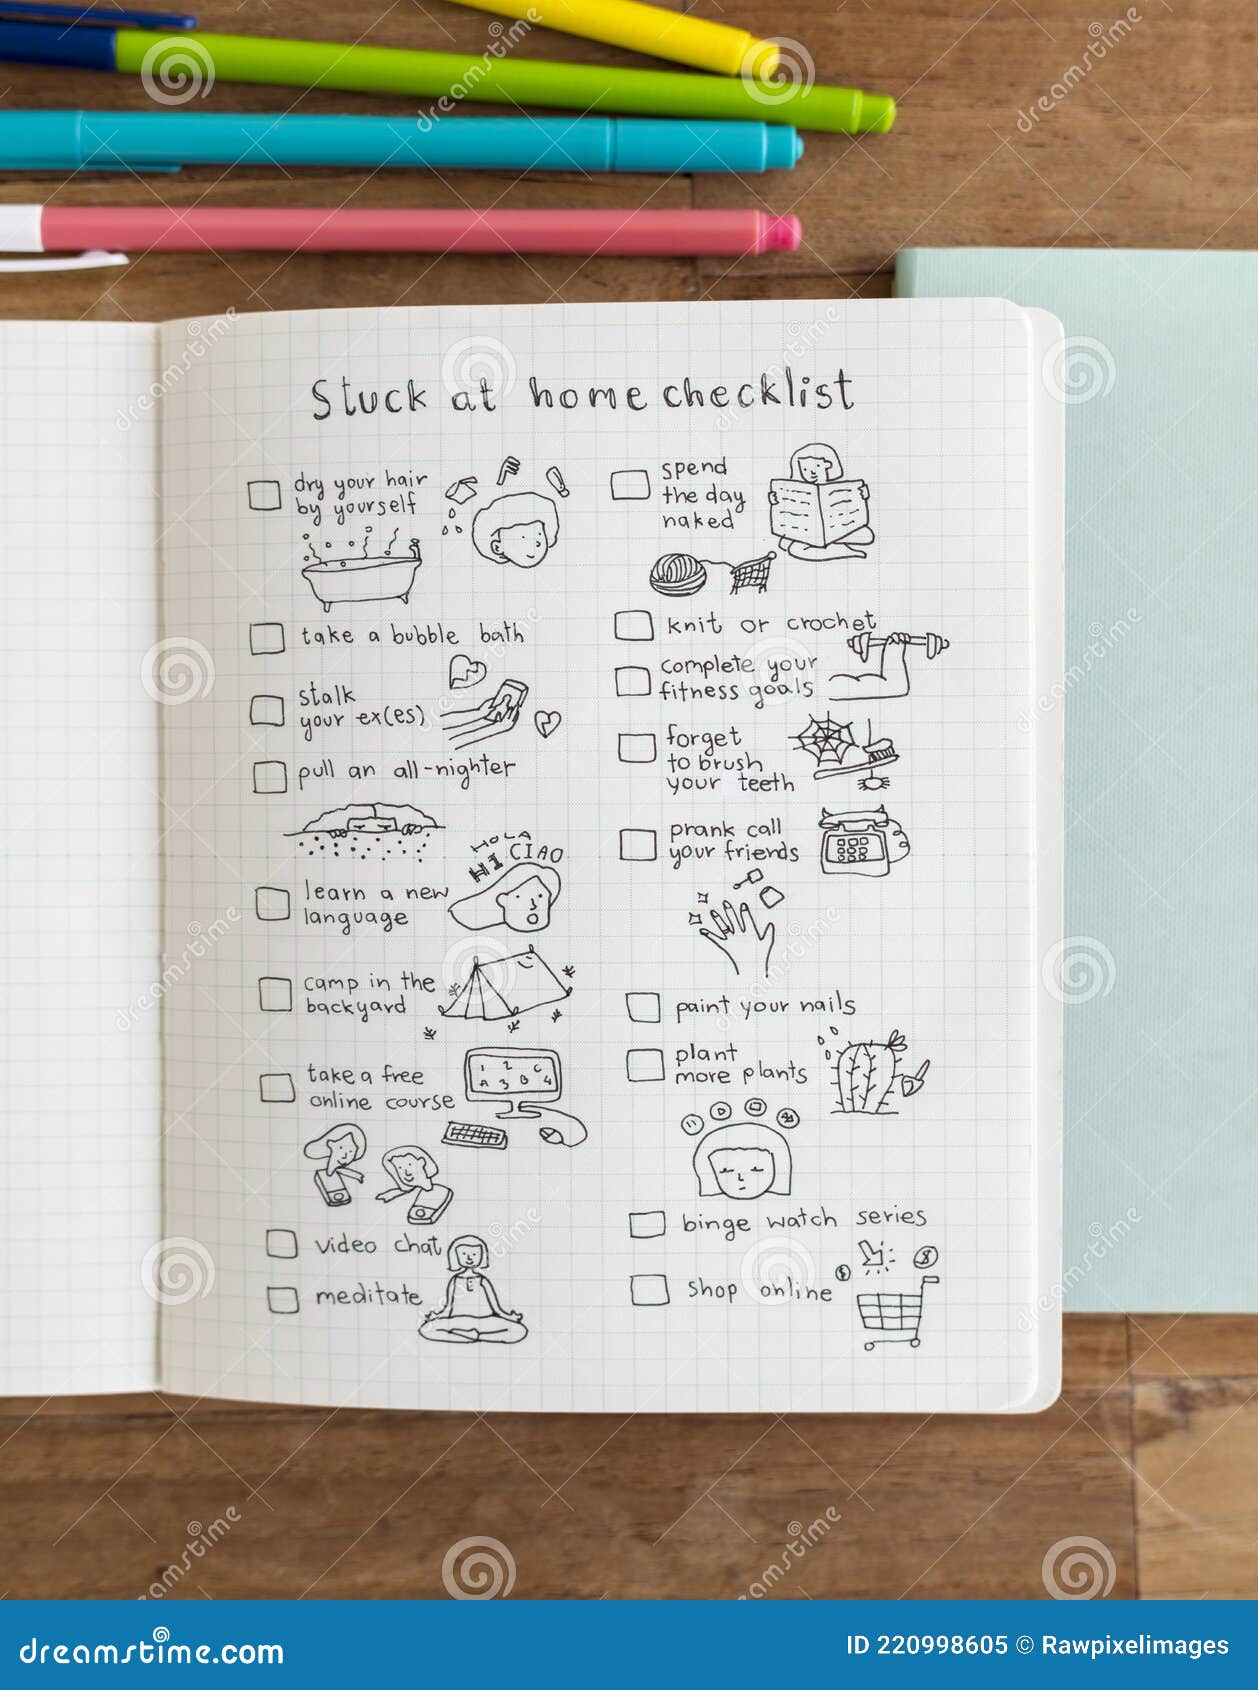 Stuck at home checklist
dry your hair
by yourself
take a bubble bath
stalk
your ex(es)
pull an all-nighter
HOLA
HI CIAO
learn a new
language
camp in the
backyard
take a free
online course
1 2 C
A 3 B 4
video chat
meditate
spend
the day
naked
knit or crochet
complete your
fitness goals
forget
to brush
your teeth
prank call
your friends
paint your nails
plant
more plants
binge watch series
shop online
$ $
dreamstime.com
ID 220998605 © Rawpixelimages